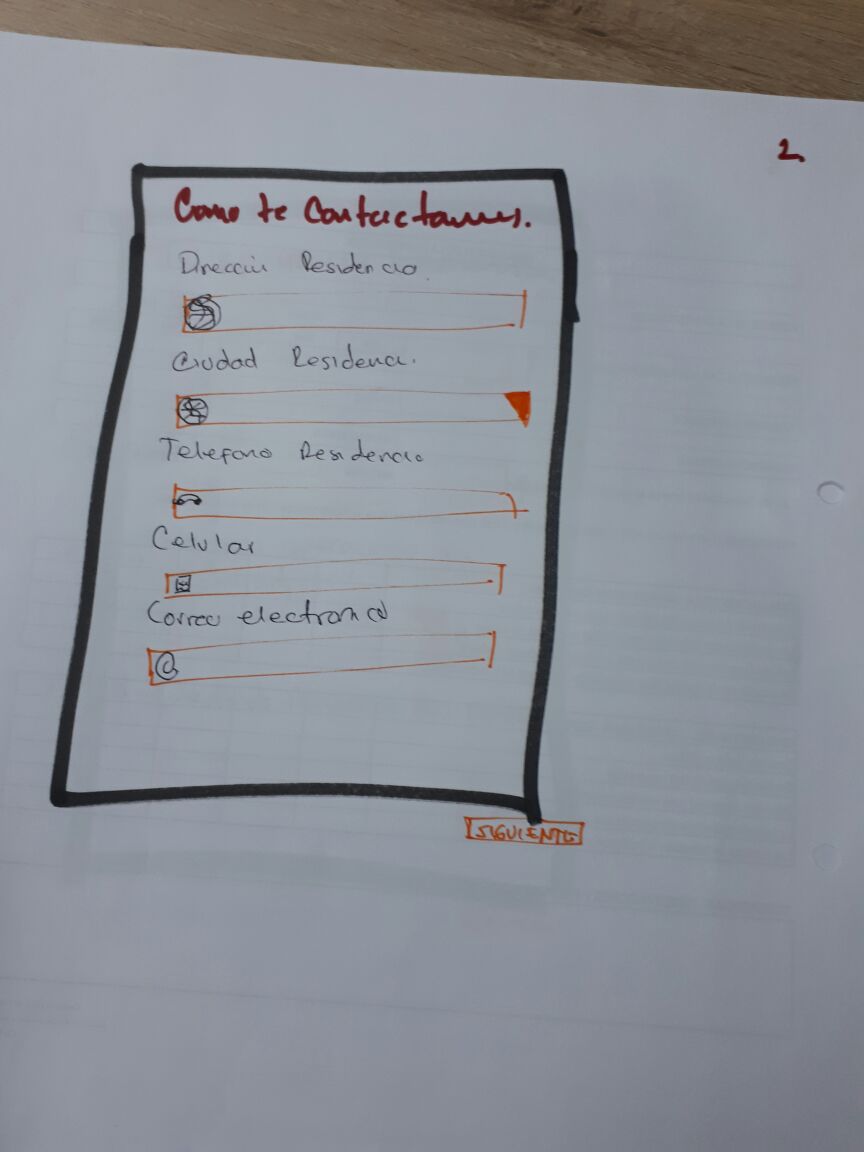 2
Como te Contactamos.
Dirección Residencia.
Ciudad Residencia.
Telefono Residencia
Celular
Correo electronico
@
SIGUIENTE